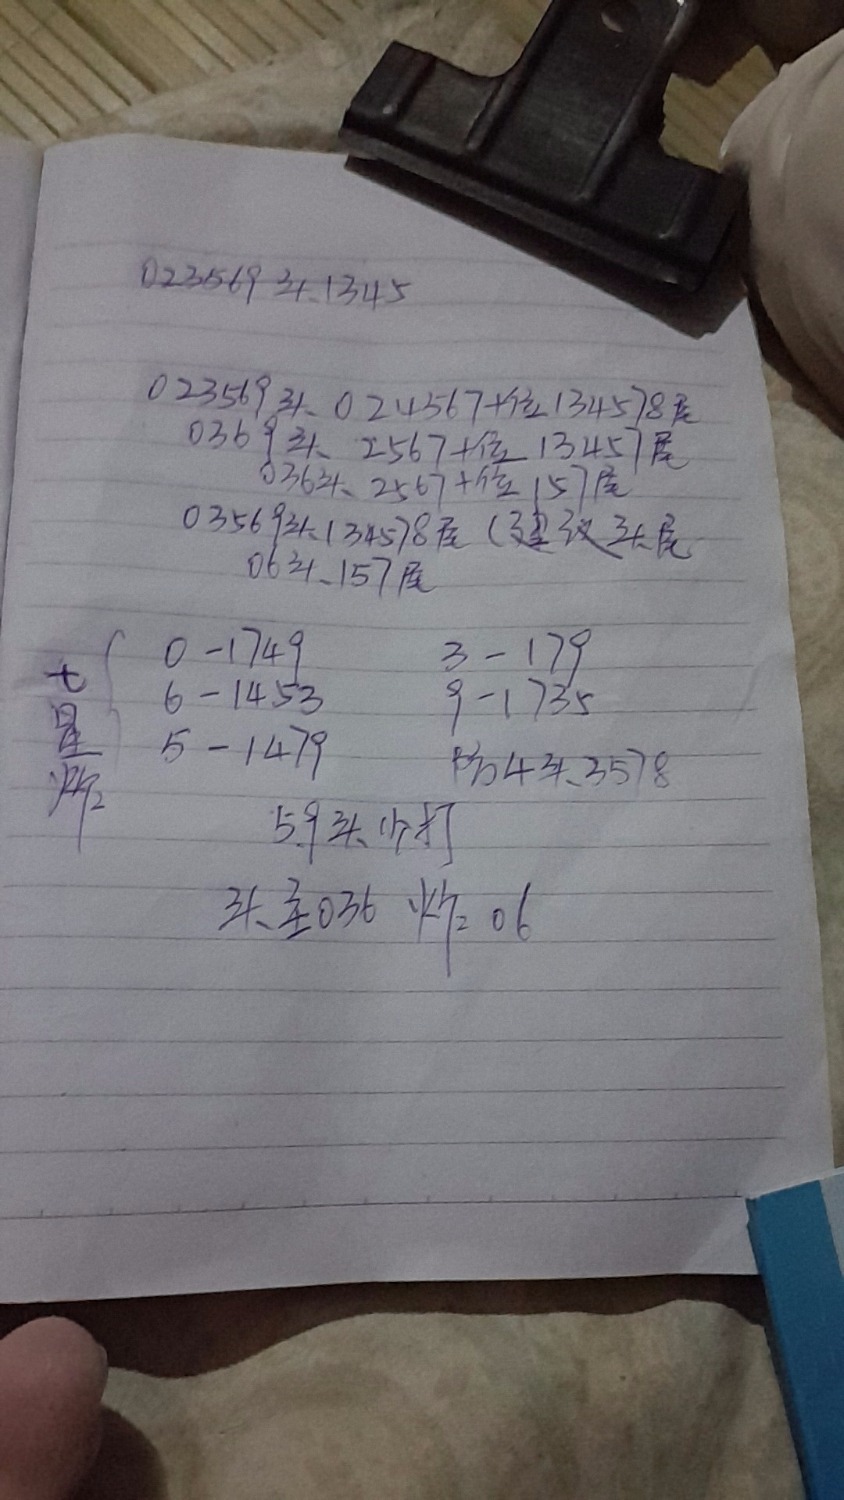 023569头1345
023569头024567十位134578尾
0369头2567十位13457尾
036头2567十位157尾
03569头134578尾(建议头尾
06头157尾
七星
0-1749 3-179
6-1453 9-1735
5-1479 防4头3578
59头少打
头主036 06